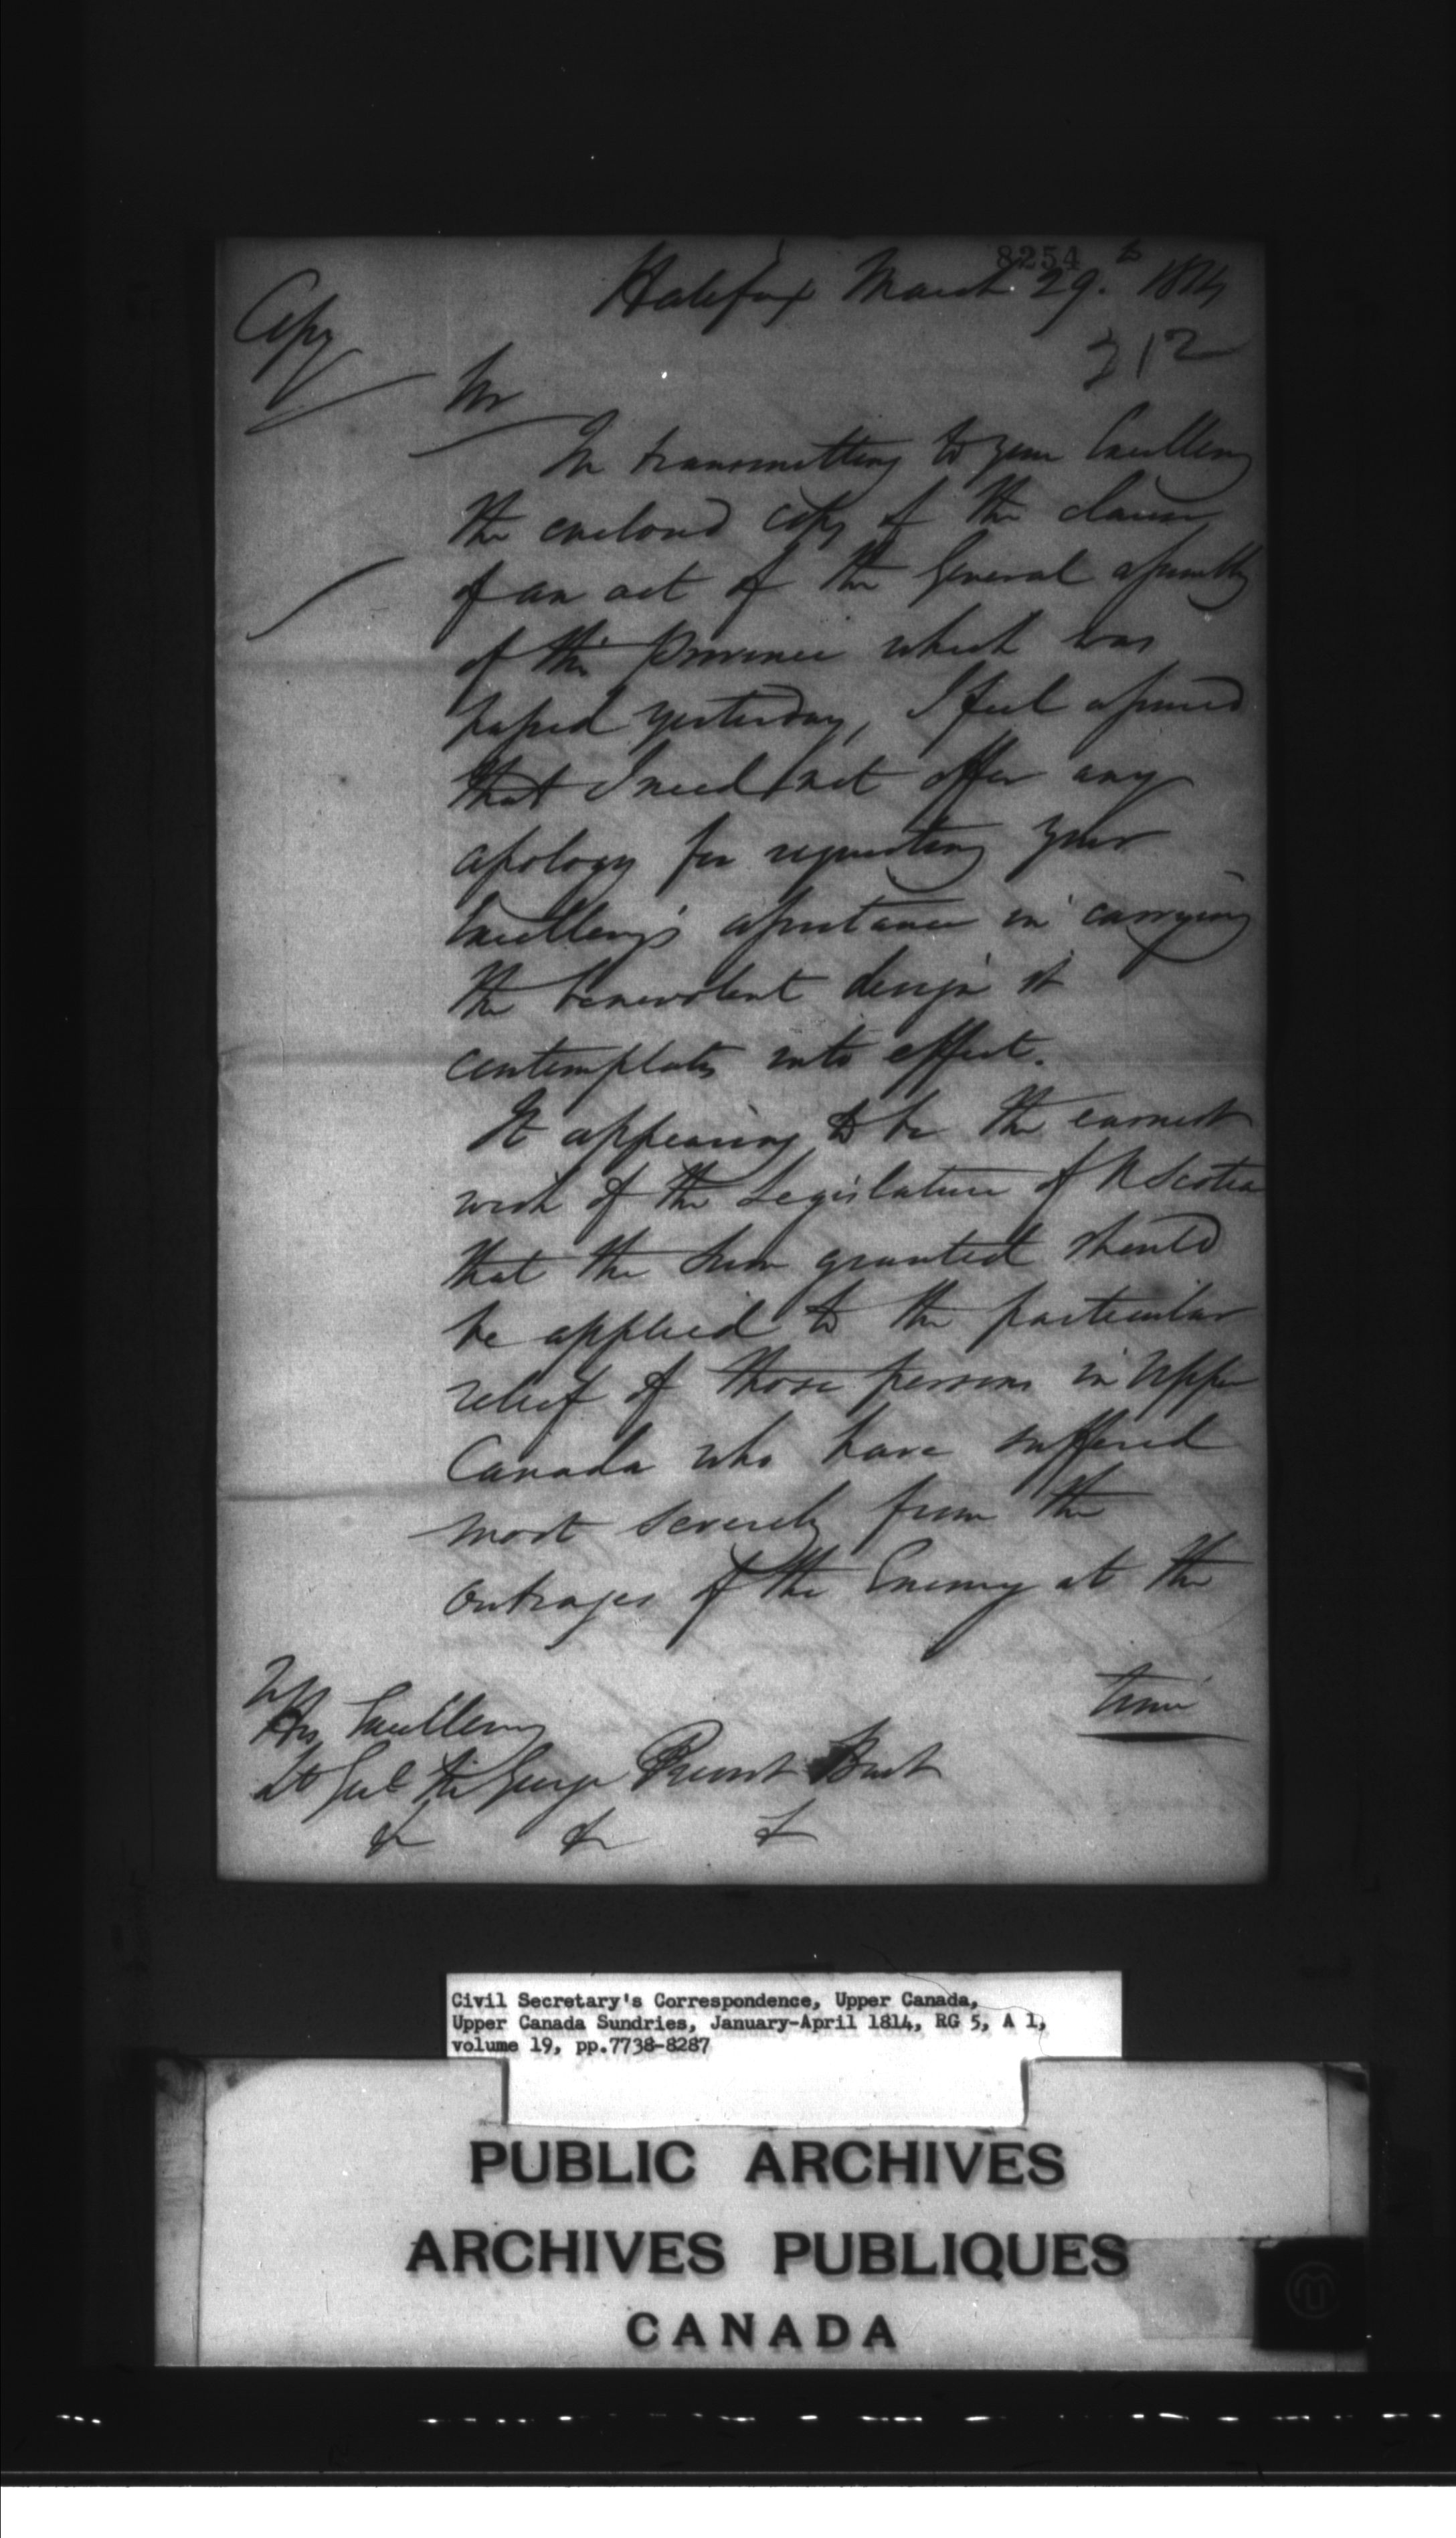 8254
Halifax March 29.th 1814
Copy
312
Sir
In transmitting to your Excellency
the enclosed copy of the clause
of an act of the General assembly
of this Province which was
passed yesterday, I feel assured
that I need not offer any
apology for requesting your
Excellency's assistance in carrying
the benevolent design it
contemplates into effect.
It appearing to be the earnest
wish of the Legislature of N Scotia
that the Sum granted should
be applied to the particular
relief of those persons in Upper
Canada who have suffered
most severely from the
outrages of the Enemy at the
time
His Excellency
Lt Genl Sir George Prevost Bart
& & &
Civil Secretary's Correspondence, Upper Canada,
Upper Canada Sundries, January-April 1814, RG 5, A 1,
volume 19, pp.7738-8287
PUBLIC ARCHIVES
ARCHIVES PUBLIQUES
CANADA